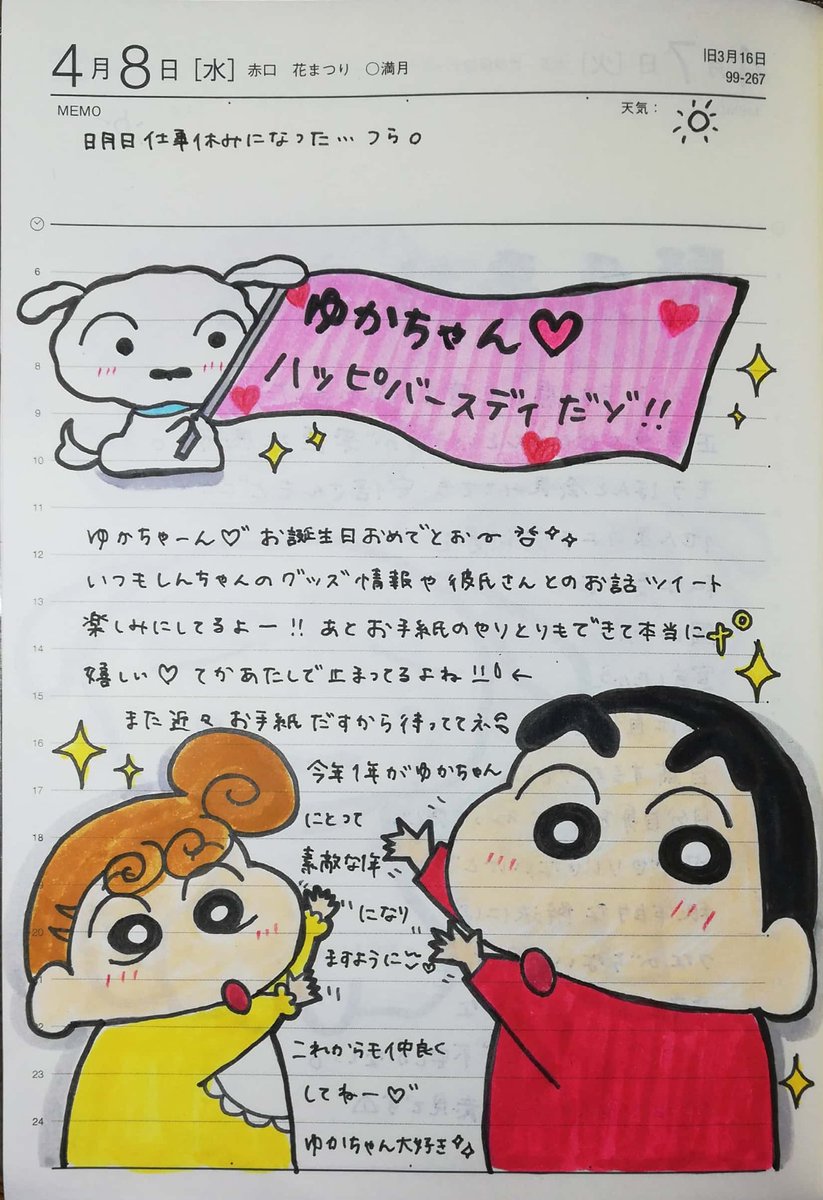 4月8日[水] 赤口 花まつり ○満月
旧3月16日
99-267
MEMO
天気:
明日仕事休みになった…つら。
ゆかちゃん♡
ハッピバースディだゾ!!
6
8
9
10
11
12
13
14
15
16
17
18
20
22
23
24
ゆかちゃーん♡お誕生日おめでとお〜
いつもしんちゃんのグッズ情報や彼氏さんとのお話ツイート
楽しみにしてるよー!!あとお手紙のやりとりもできて本当に
嬉しい♡てかあたしで止まってるよね!!←
また近々お手紙だすから待っててネ
今年1年がゆかちゃん
にとって
素敵な1年
になり
ますように
これからモ仲良く
してねー♡
ゆかちゃん大好き